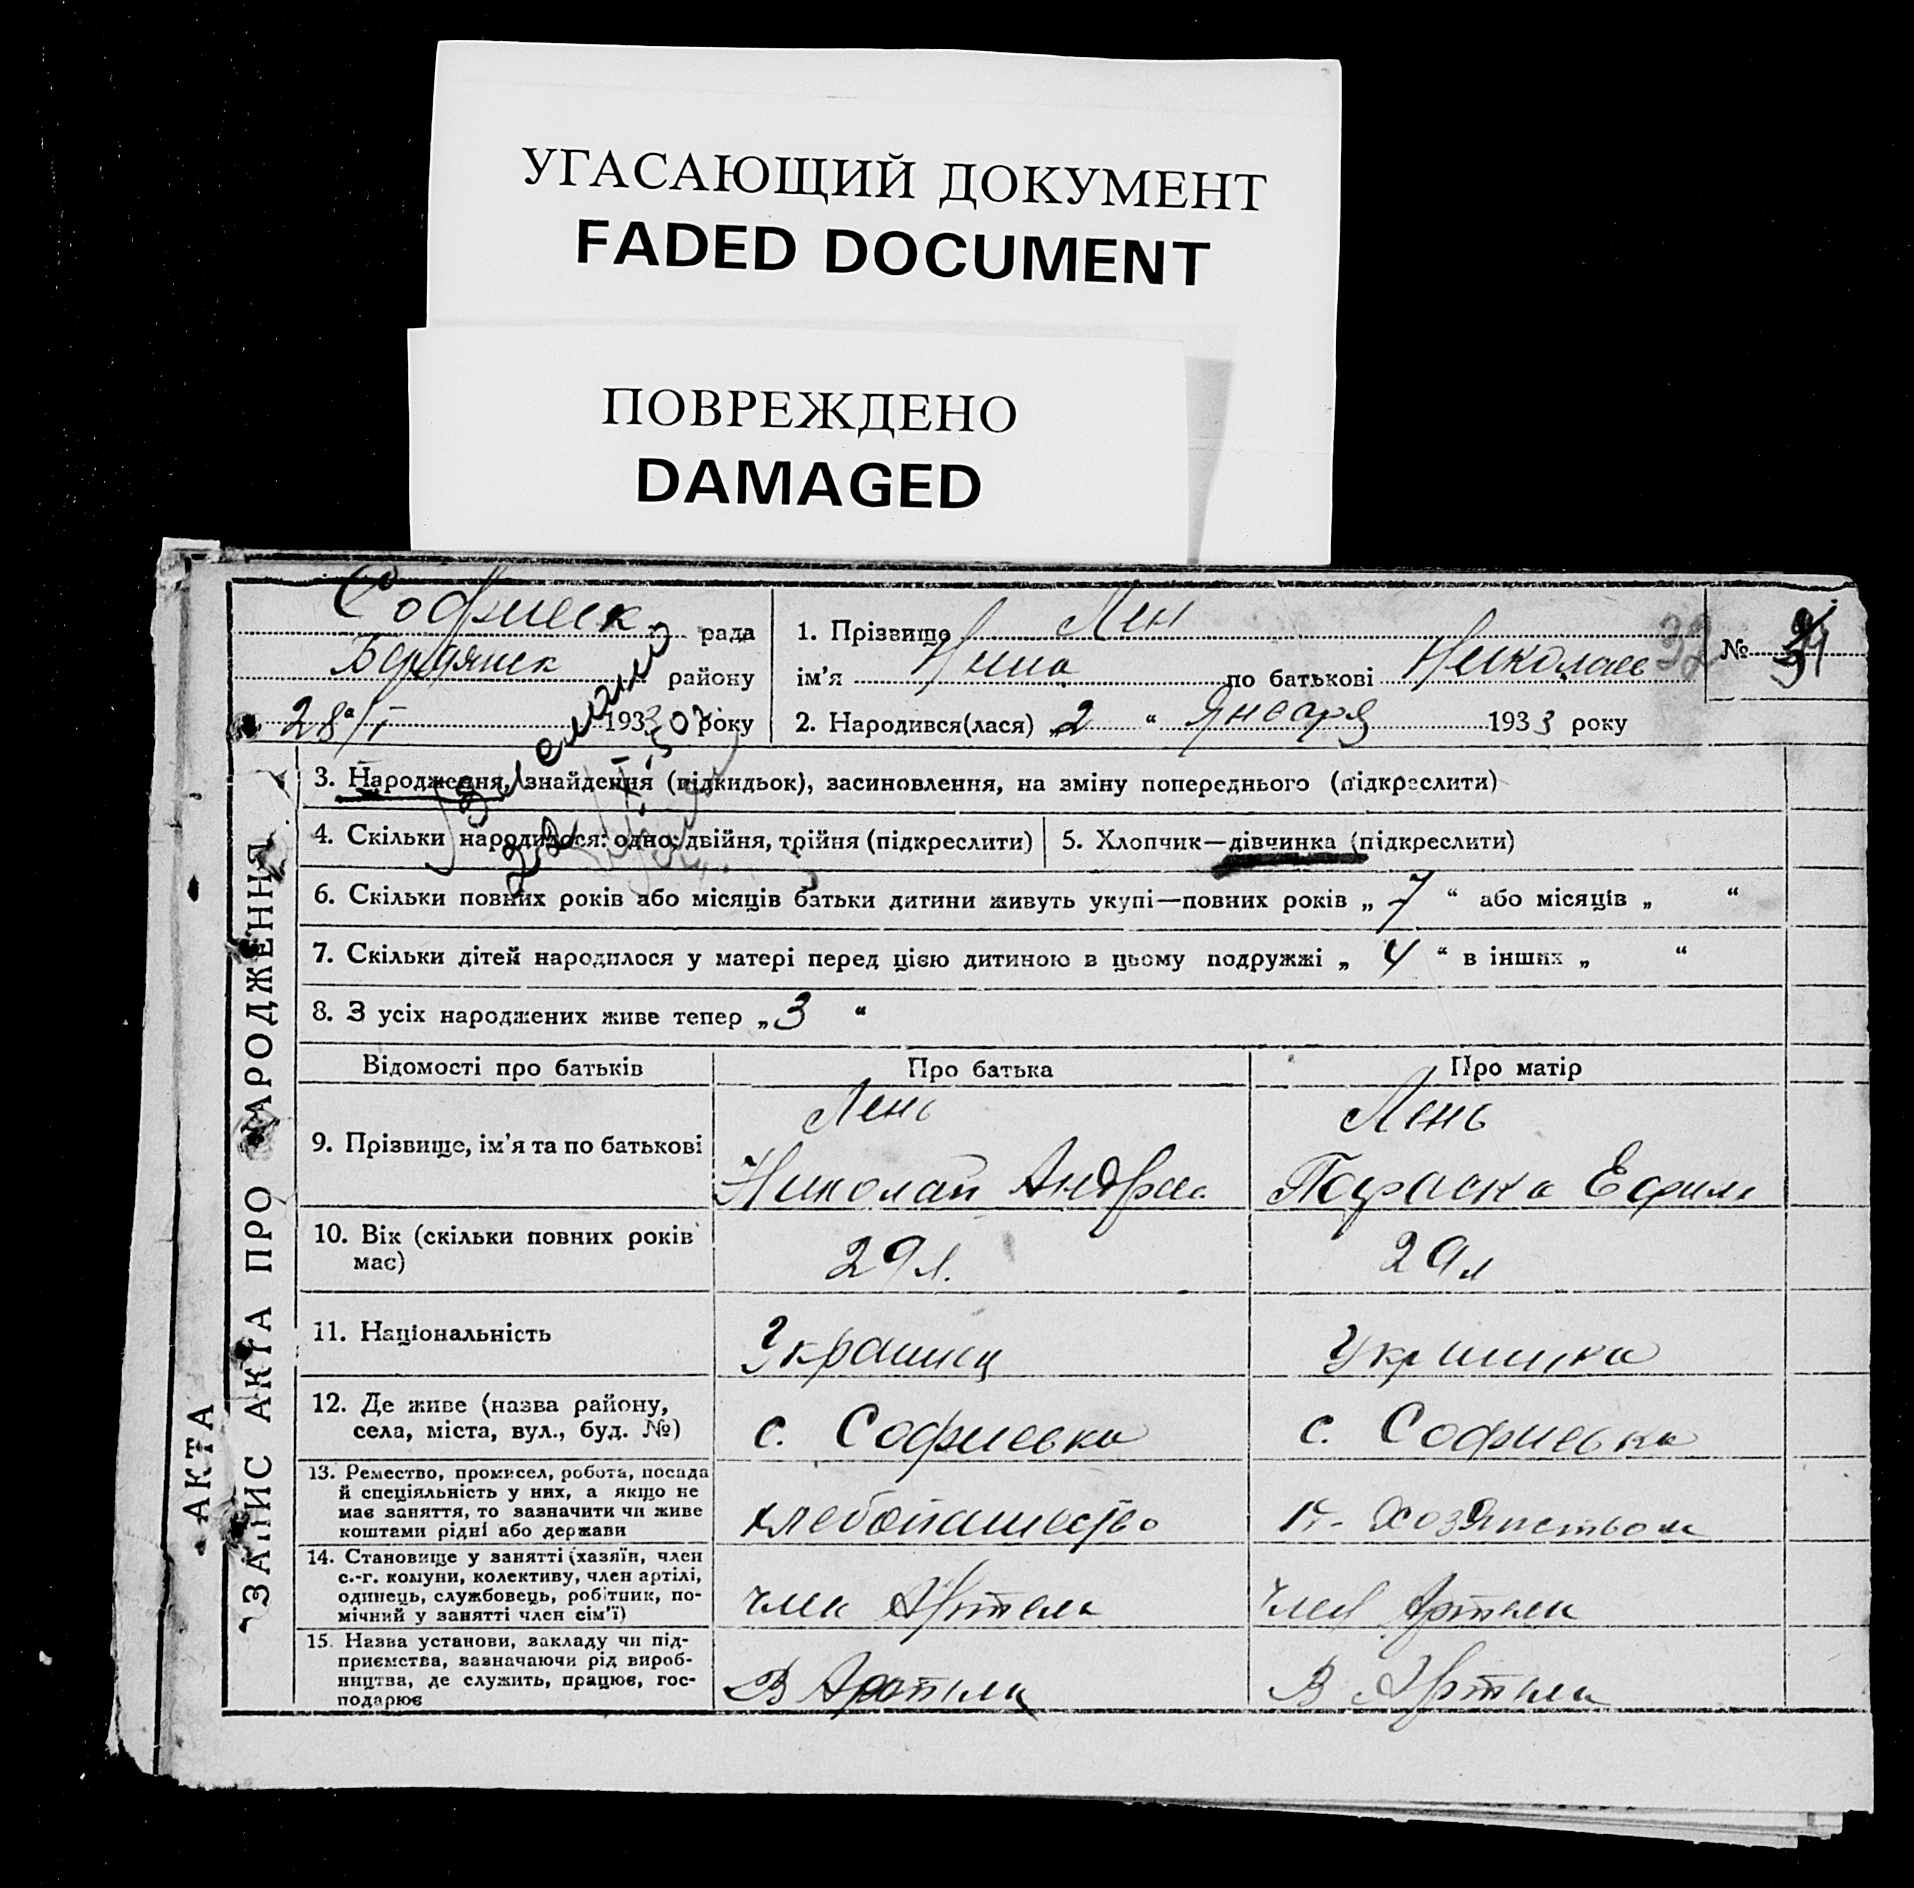 УГАСАЮЩИЙ ДОКУМЕНТ
FADED DOCUMENT
ПОВРЕЖДЕНО
DAMAGED
Софиевск. рада
Бердянск району
28/I 1933 року
1. Прізвище Лен
ім’я Нина по батькові Николаев 32
№ 31
2. Народився(лася) „2 “ Января 1933 року
3. Народження, знайдення (підкидьок), засиновлення, на зміну попереднього (підкреслити)
4. Скільки народилося: одно, двійня, трійня (підкреслити)
5. Хлопчик—дівчинка (підкреслити)
6. Скільки повних років або місяців батьки дитини живуть укупі—повних років „ 7 “ або місяців „ “
7. Скільки дітей народилося у матері перед цією дитиною в цьому подружжі „ 4 “ в інших „ “
8. З усіх народжених живе тепер „3 “
Відомості про батьків Про батька Про матір
9. Прізвище, ім’я та по батькові
Лень
Николай Андрее.
Лень
Параска Ефим
10. Вік (скільки повних років має)
29 л.
29 л
11. Національність
Украинец
Украинка
12. Де живе (назва району,
села, міста, вул., буд. №)
с. Софиевка
с. Софиевка
13. Ремество, промисел, робота, посада
й спеціяльність у них, а якщо не
має заняття, то зазначити чи живе
коштами рідні або держави
хлебопашество
хозяйством
14. Становище у занятті (хазяїн, член
с.-г. комуни, колективу, член артілі,
одинець, службовець, робітник, по-
мічний у занятті член сім’ї)
член Артели
член Артели
15. Назва установи, закладу чи під-
приємства, зазначаючи рід вироб-
ництва, де служить, працює, гос-
подарює
В Артели
В Артели
ЗАПИС АКТА ПРО НАРОДЖЕННЯ
АКТА